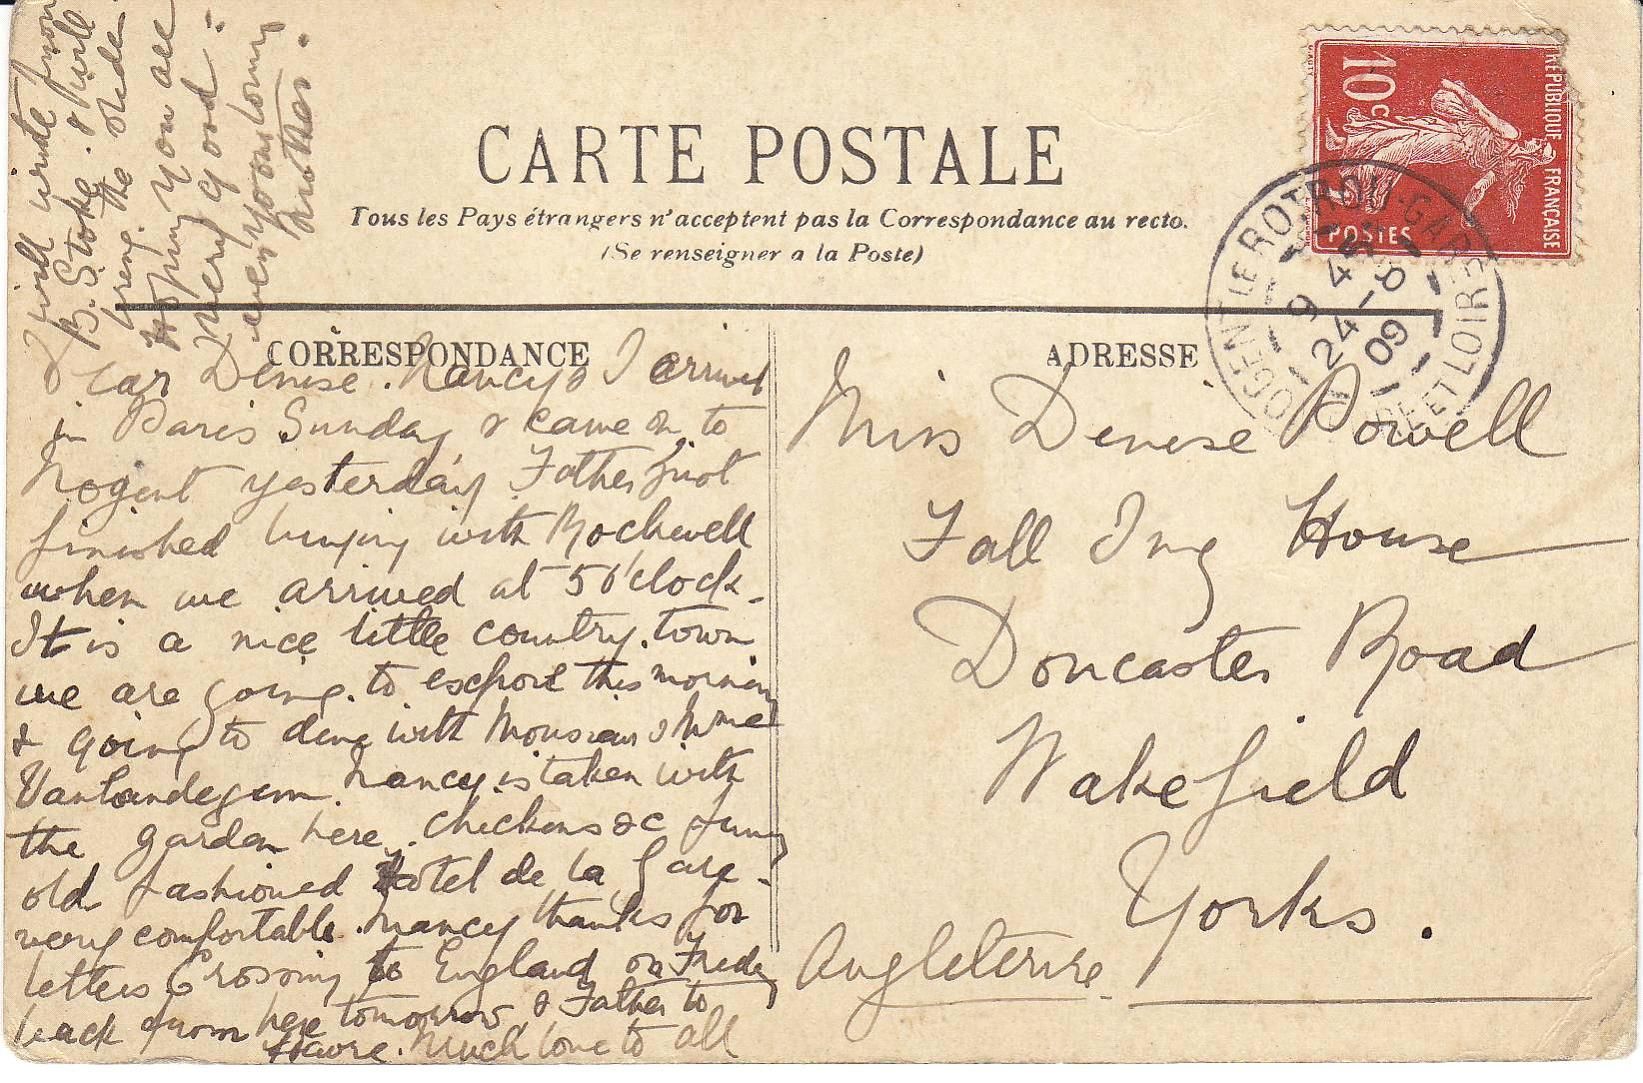 CARTE POSTALE
Tous les Pays étrangers n'acceptent pas la Correspondance au recto.
(Se renseigner a la Poste)
RÉPUBLIQUE FRANÇAISE
10c
POSTES
NOGENT-LE-ROTROU-GARE
EURE ET LOIR
9 45
24 - 8
09
CORRESPONDANCE
Dear Denise. Nancy & I arrived
in Paris Sunday & came on to
Nogent yesterday Father just
finished buying with Rockwell
when we arrived at 5 o'clock -
It is a nice little country town
we are going to explore this morning
& going to dine with Monsieur & Mme
Nancy is taken with
the garden here. Chickens &c funny
old fashioned Hotel de la Gare -
very comfortable. Nancy thanks for
letters Crossing to England on Friday
back from here tomorrow & Father to
Havre. Much love to all
I will write from
B. Stoke & Hull
the
Hoping you are
very good -
ever your loving
Mother.
ADRESSE
Miss Denise Powell
Fall Ing House
Doncaster Road
Wakefield
Yorks.
Angleterre